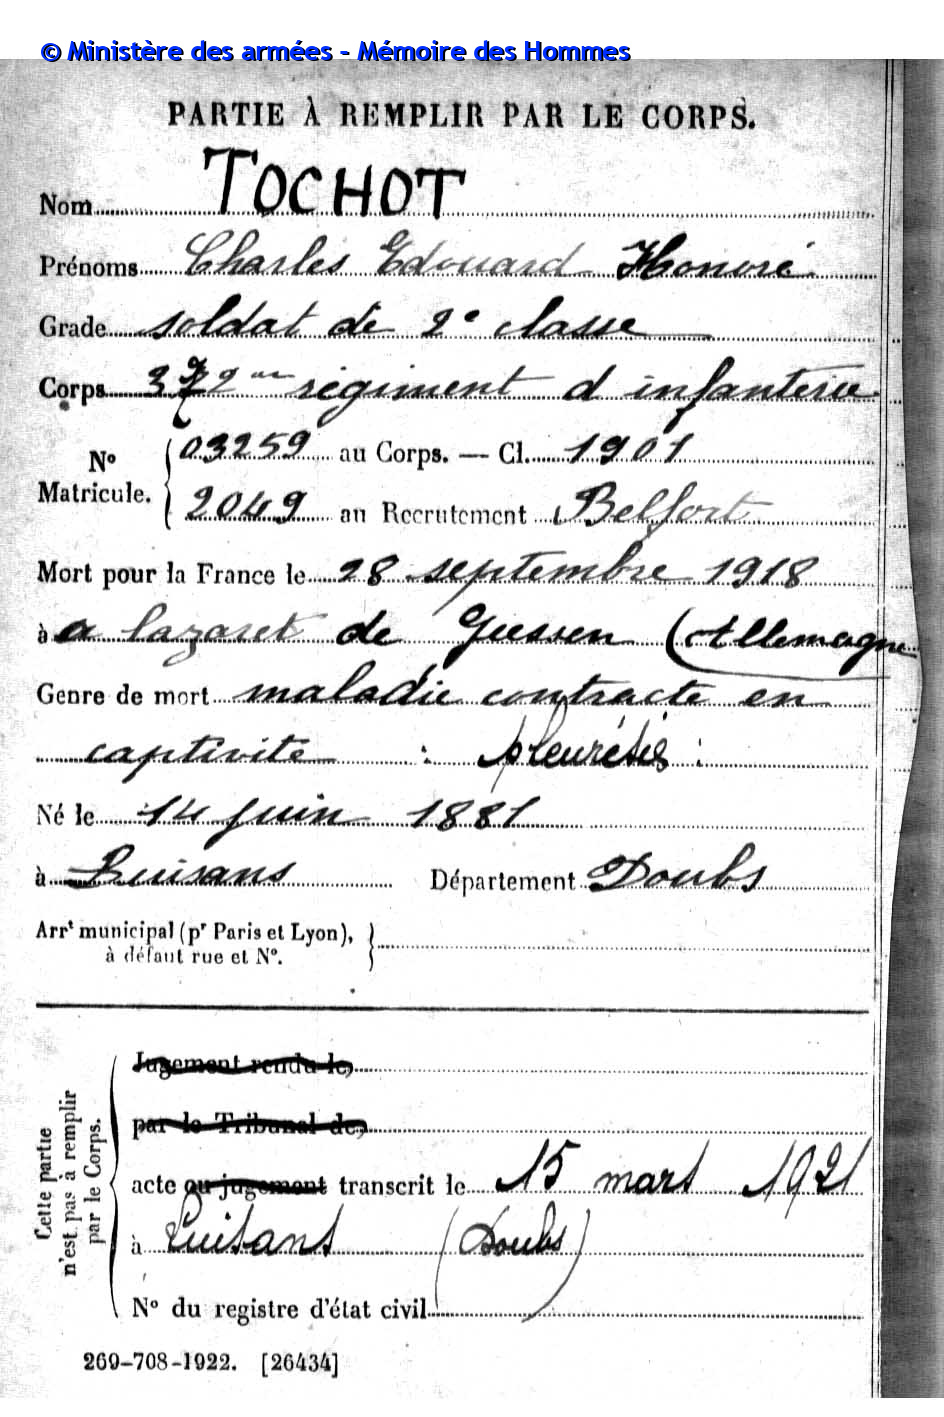 © Ministère des armées - Mémoire des Hommes
PARTIE À REMPLIR PAR LE CORPS.
Nom TOCHOT
Prénoms Charles Edouard Honoré
Grade soldat de 2e classe
Corps 372me régiment d infanterie
No Matricule. 03259 au Corps. — Cl. 1901
2049 au Recrutement Belfort
Mort pour la France le 28 septembre 1918
à a lazaret de Giessen (Allemagne
Genre de mort maladie contracte en
captivité : pleurésie :
Né le 14 juin 1881
à Luisans Département Doubs
Arrt municipal (pr Paris et Lyon),
à défaut rue et No.
Cette partie
n'est pas à remplir
par le Corps.
Jugement rendu le,
par le Tribunal de,
acte ou jugement transcrit le 15 mars 1921
à Luisans (Doubs)
No du registre d'état civil
269-708-1922. [26434]